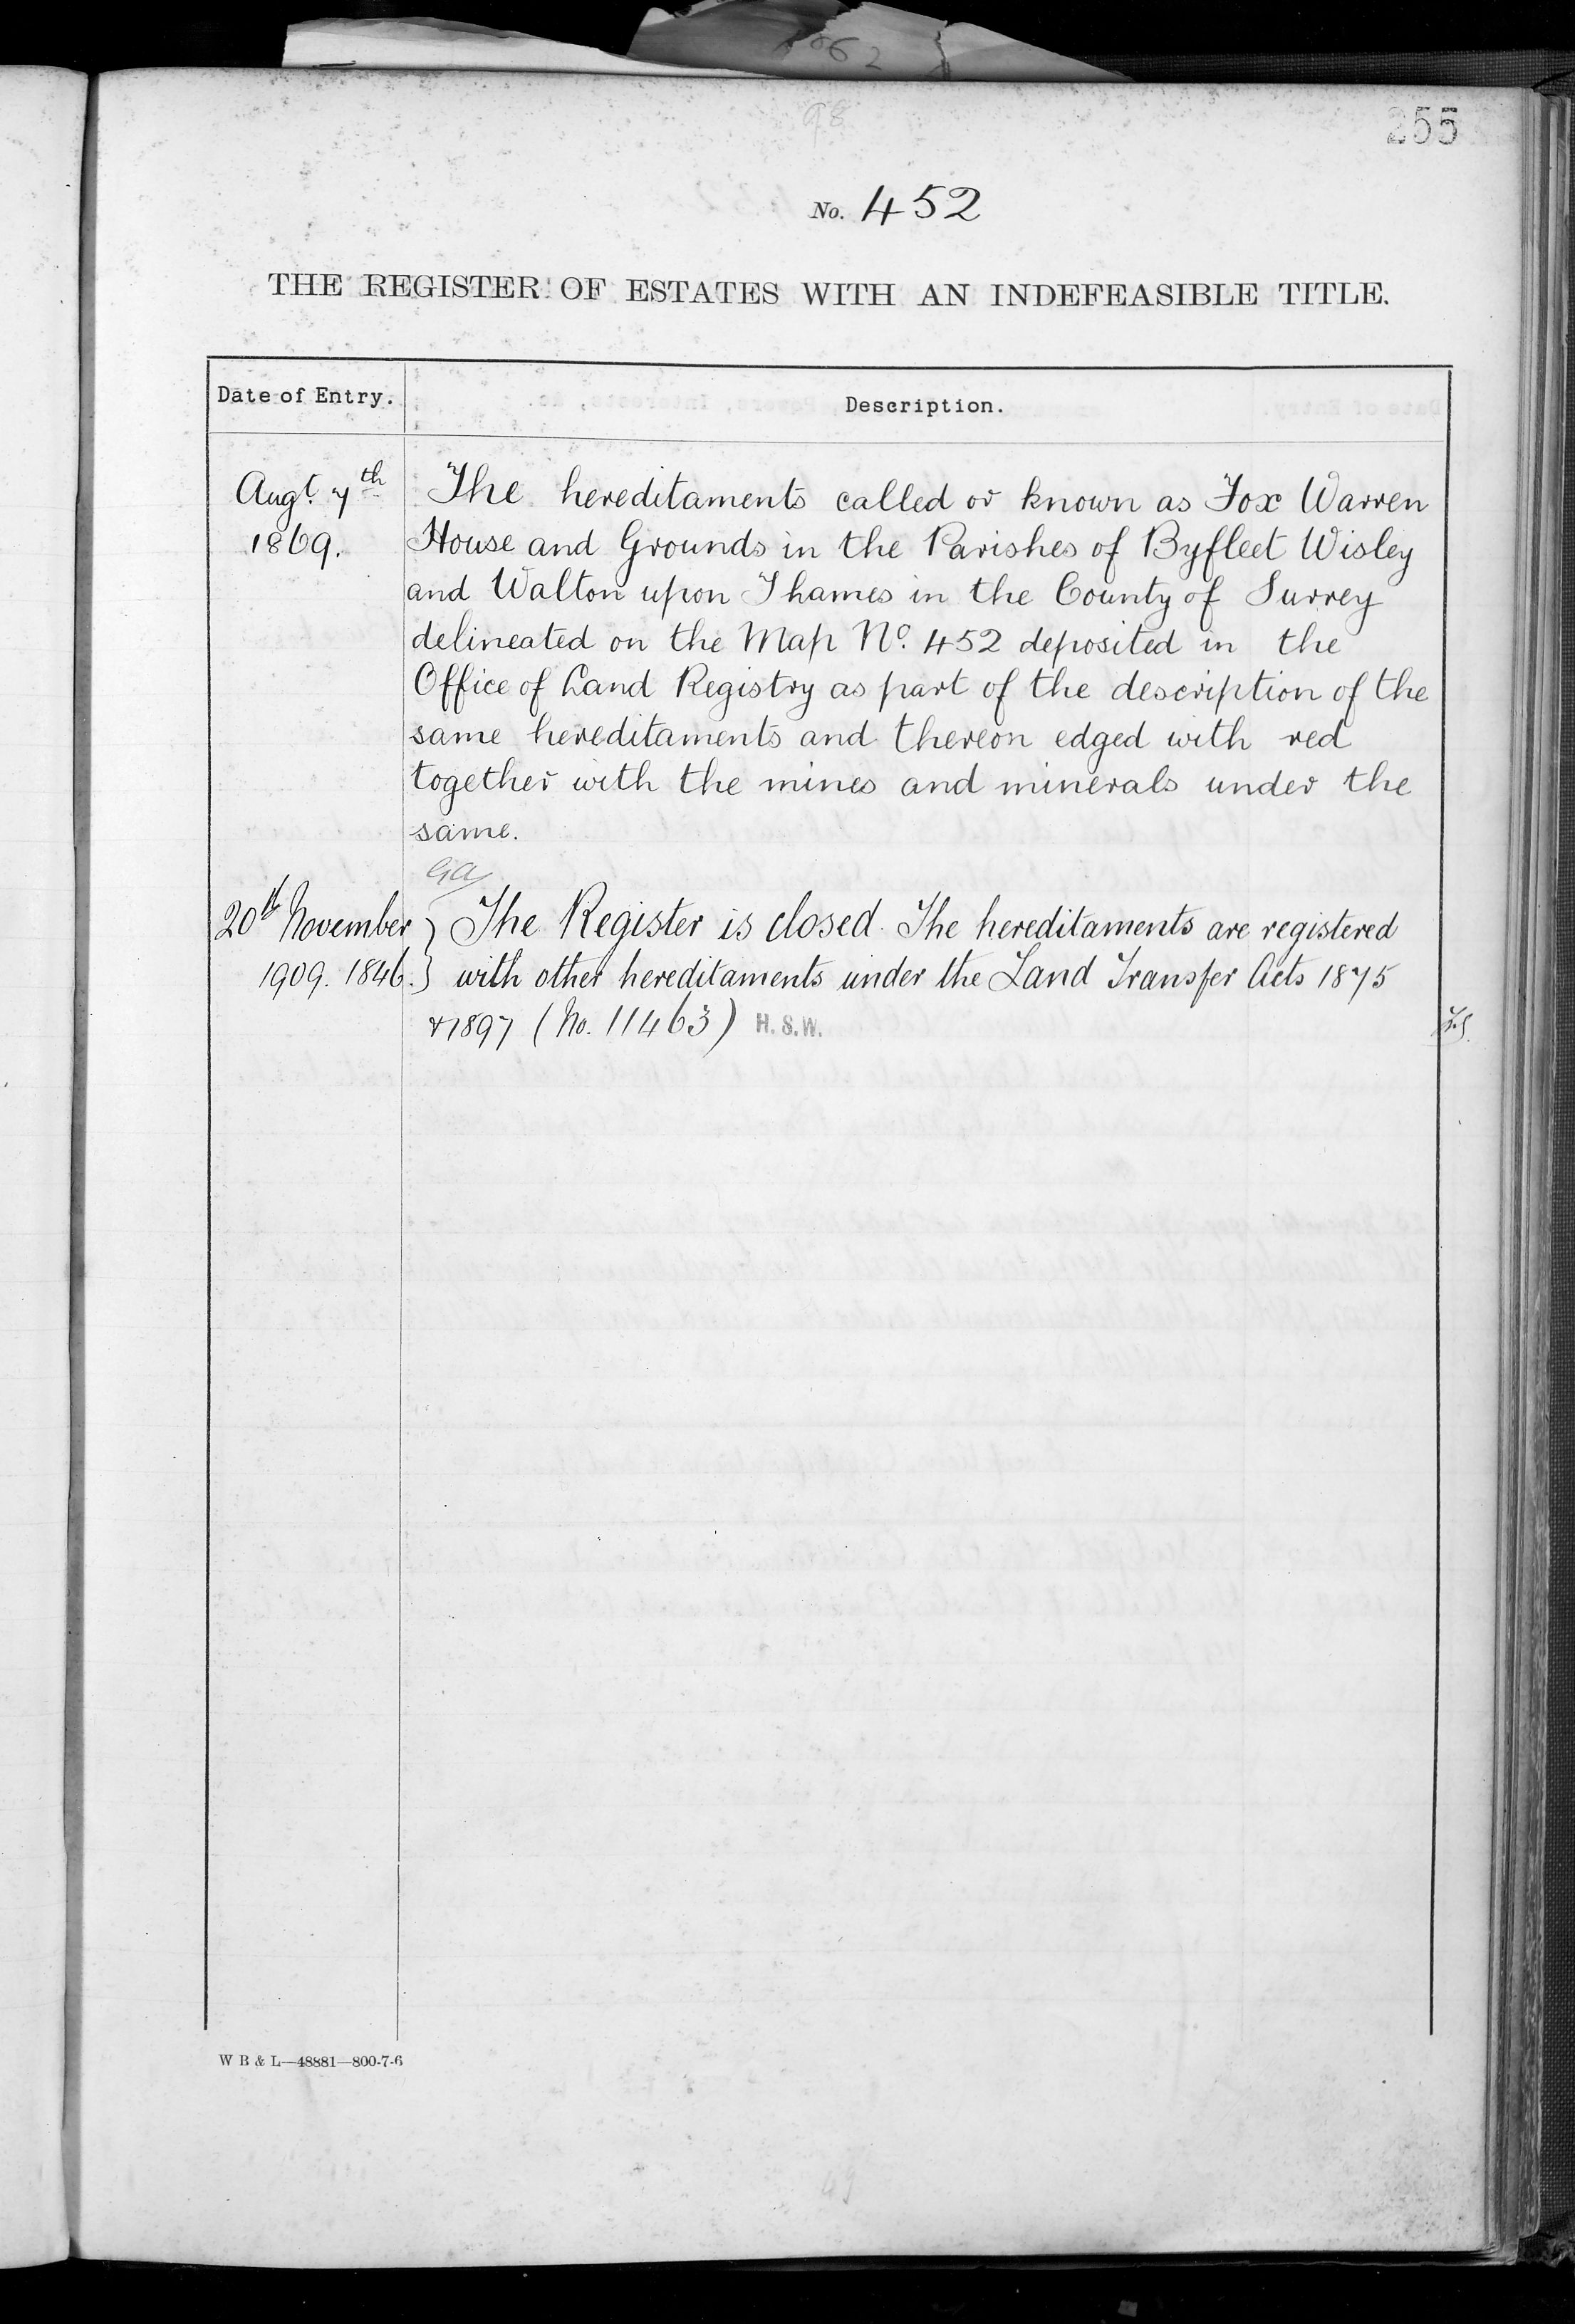 98
255
No. 452
THE REGISTER OF ESTATES WITH AN INDEFEASIBLE TITLE.
Date of Entry.
Description.
Augt. 7th
1869.
The hereditaments called or known as Fox Warren
House and Grounds in the Parishes of Byfleet Wisley
and Walton upon Thames in the County of Surrey
delineated on the Map No. 452 deposited in the
Office of Land Registry as part of the description of the
same hereditaments and thereon edged with red
together with the mines and minerals under the
same.
20th November
1909. 1846.
The Register is closed. The hereditaments are registered
with other hereditaments under the Land Transfer Acts 1875
& 1897 (No. 11463) H.S.W.
W B & L—48881—800-7-6
49